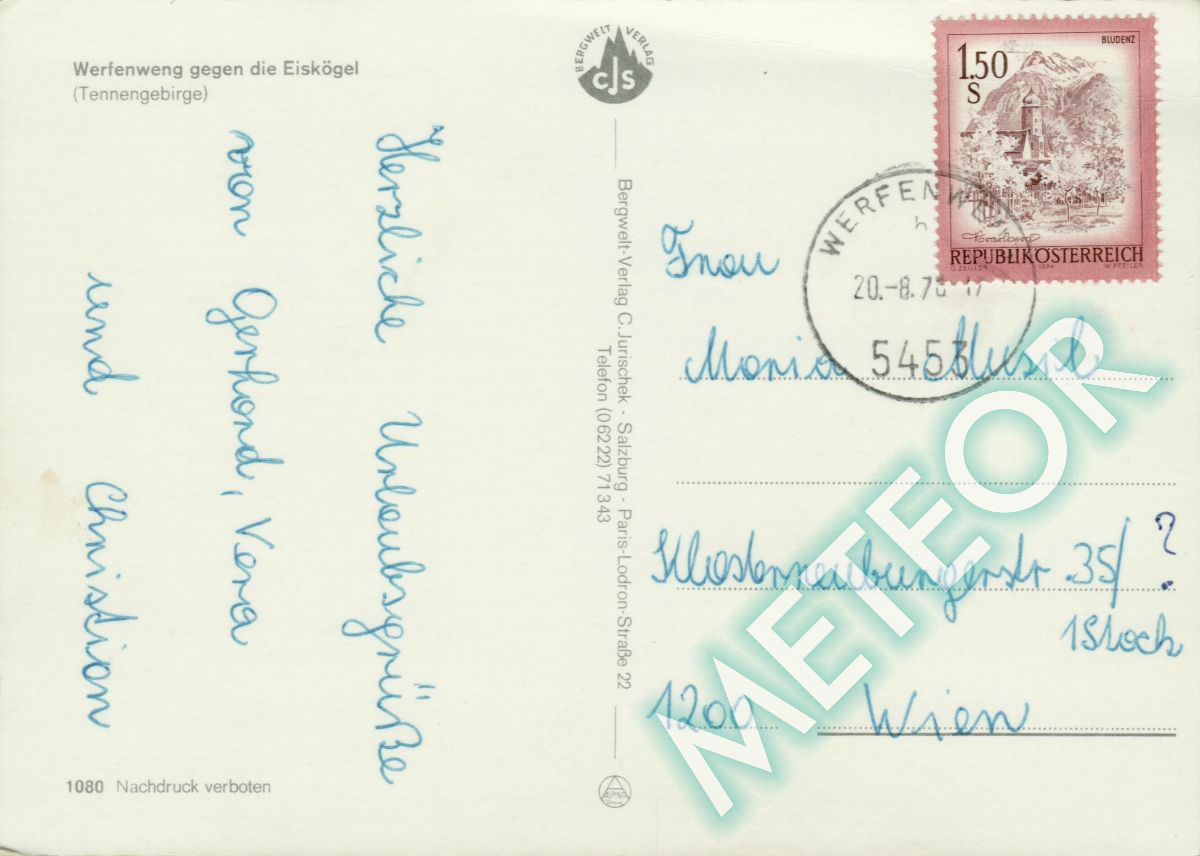 Werfenweng gegen die Eiskögel
(Tennengebirge)
Herzliche Urlaubsgrüße
von Gerhard, Vera
und Christian
1080 Nachdruck verboten
BERGWELT VERLAG
CJS
Bergwelt-Verlag C.Jurischek - Salzburg - Paris-Lodron-Straße 22
Telefon (06222) 71343
ALPINA
BLUDENZ
1.50
S
Vorarlberg
REPUBLIK ÖSTERREICH
O. ZEILLER 1974 W. PFEILER
WERFENWENG
20.-8.78
5453
Frau
Maria Musil
Klosterneuburgerstr. 35/ ?
1 Stock
1200 Wien
METEOR